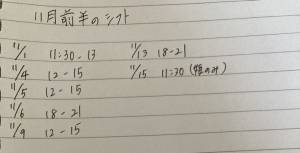 11月前半のシフト
11/1 11:30-13
11/4 12-15
11/5 12-15
11/6 18-21
11/9 12-15
11/13 18-21
11/15 11:30 (のみ)